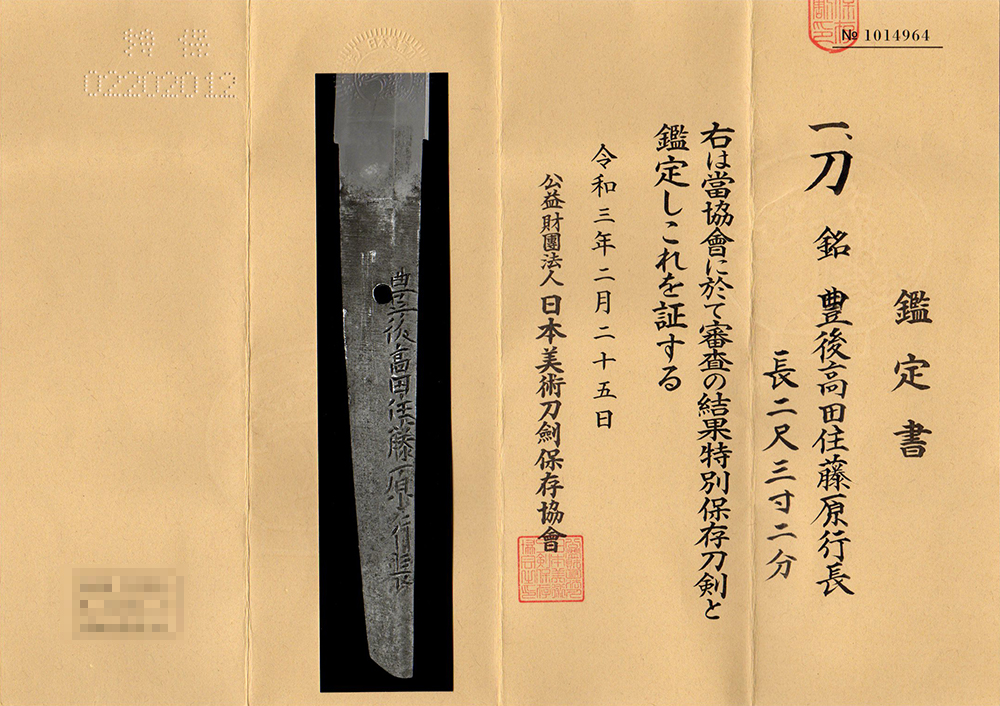 № 1014964
鑑定書
一、刀 銘 豊後高田住藤原行長
長二尺三寸二分
右は當協會に於て審査の結果特別保存刀剣と
鑑定しこれを証する
令和三年二月二十五日
公益財團法人 日本美術刀劍保存協會
豊後高田住藤原行長
特保
02202012